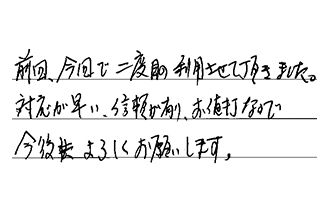 前回、今回で二度目利用させて頂きました。
対応が早い、信頼が有り、お値打なので
今後共よろしくお願いします。